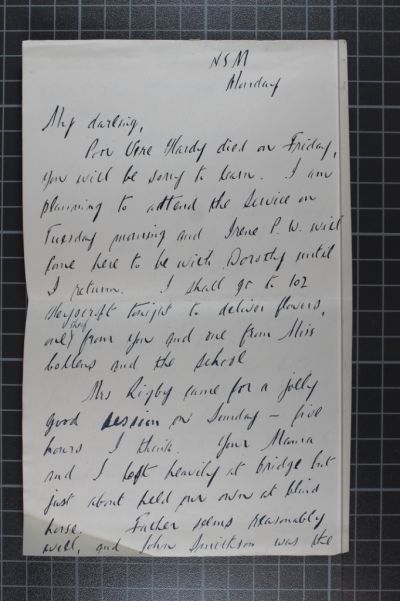 NSM
Monday
My darling,
Poor Vere Hardy died on Friday,
you will be sorry to learn. I am
planning to attend the service on
Tuesday morning and Irene P. W. will
come here to be with Dorothy until
I return. I shall go to 102
tonight to deliver flowers,
one from you and one from Miss
and the school
Mrs Rigby came for a jolly
good session on Sunday – five
hours I think. Your Mama
and I lost heavily at bridge but
just about held our own at blind
horse. Father seems reasonably
well, and John Smithson was the